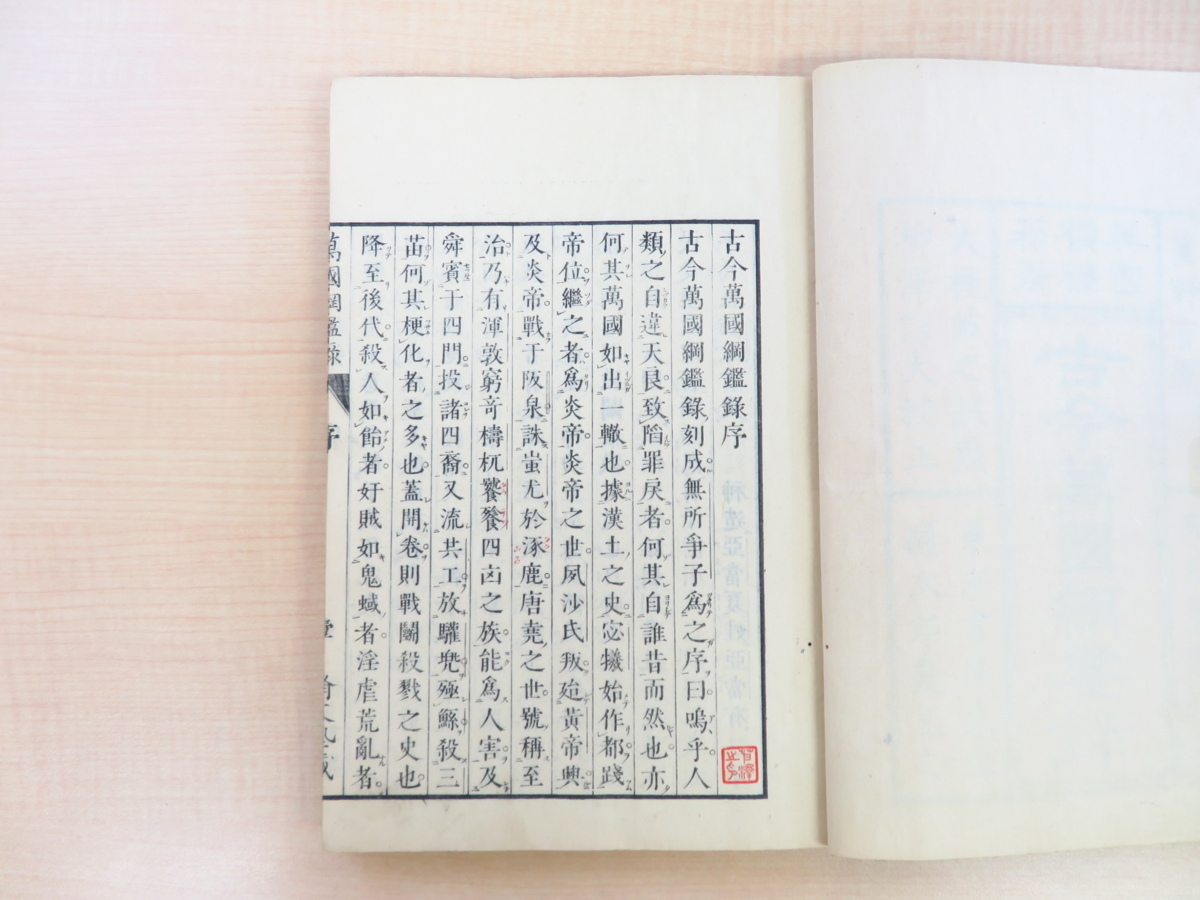 古今萬國綱鑑錄序
古今萬國綱鑑錄刻成無所爭子爲之序曰嗚乎人
類之自違天良致陷罪戾者何其自誰昔而然也亦
何其萬國如出一轍也據漢土之史宓犧始作都踐
帝位繼之者爲炎帝炎帝之世夙沙氏叛迨黃帝興
及炎帝戰于阪泉誅蚩尤於涿鹿唐堯之世號稱至
治乃有渾敦窮奇檮杌饕餮四凶之族能爲人害及
舜賓于四門投諸四裔又流共工放驩兜殛鯀殺三
苗何其梗化者之多也蓋開卷則戰鬭殺戮之史也
降至後代殺人如飴者奸賊如鬼蜮者淫虐荒亂者
萬國綱鑑錄 序